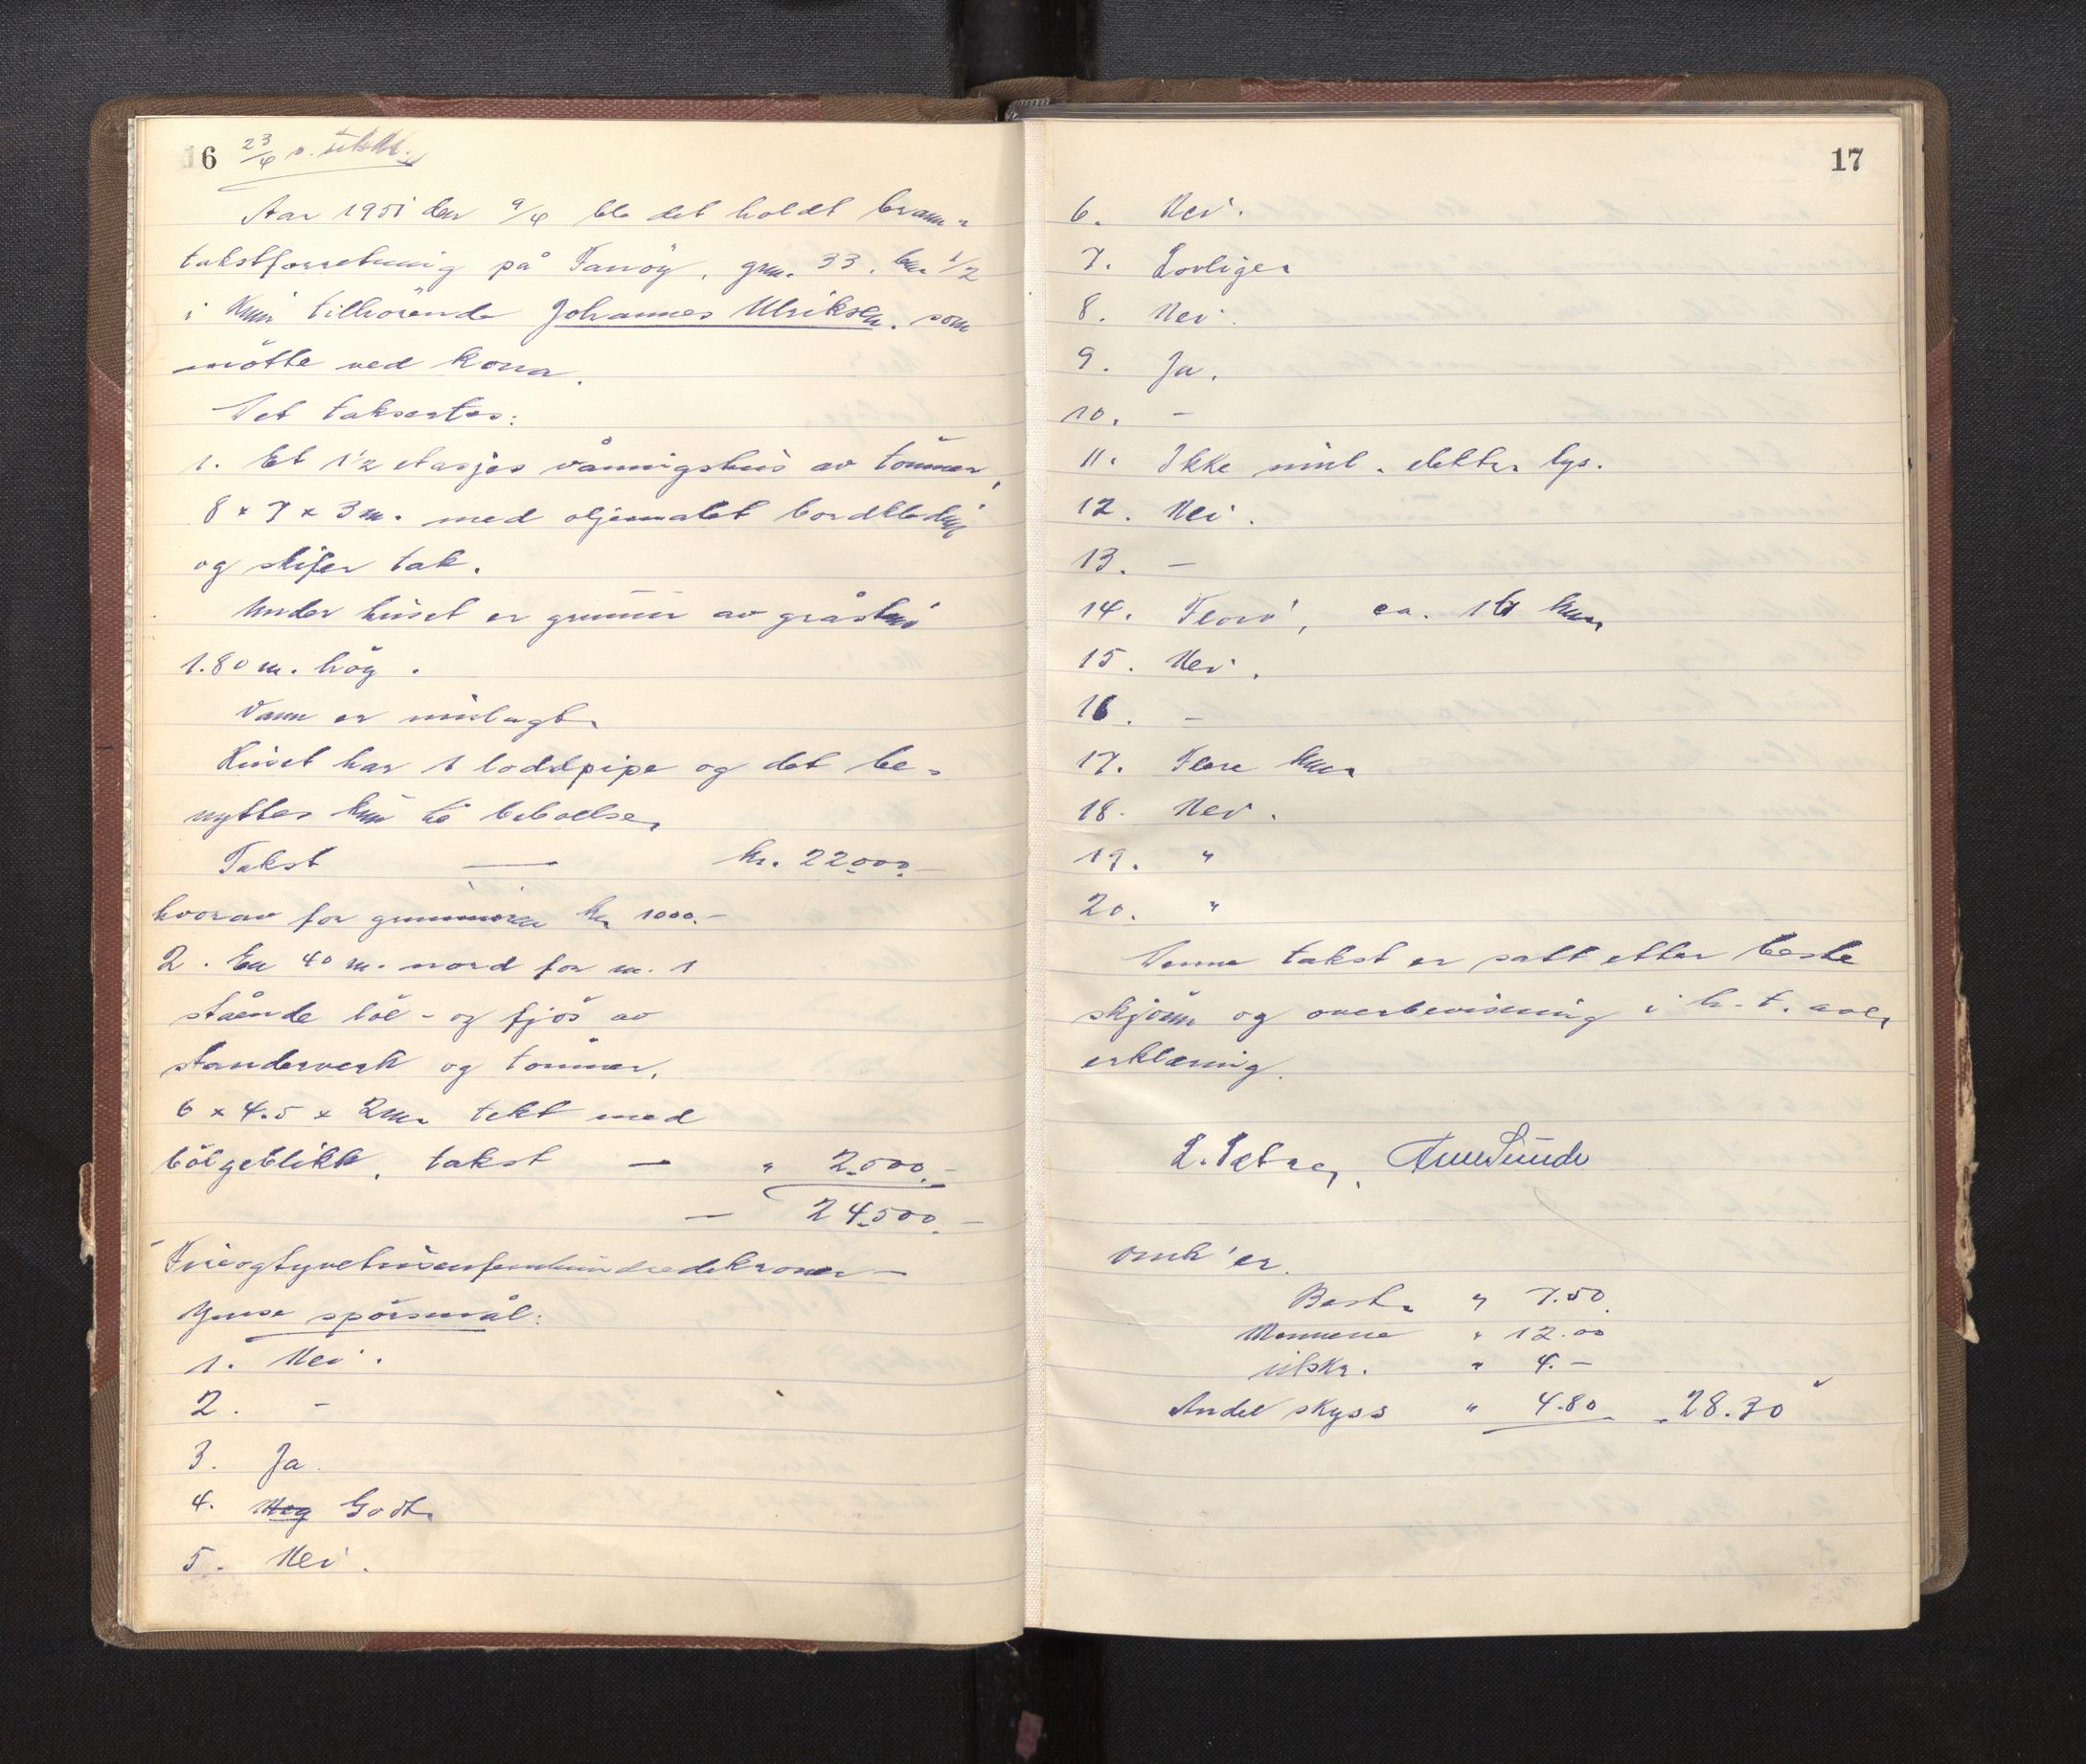 16 23/4 s. utskr.
Aar 1951 den 9/4 ble det holdt brann=
takstforretning på Fanöy, gnr. 33, bnr. 1/2
i Kinn tilhörende Johannes Ulriksen, som
mötte ved kona.
Det taksertes:
1. Et 1 1/2 etasjes våningshus av tömmer,
8 x 7 x 3 m. med oljemalet bordkledning
og skifer tak.
Under huset er grunnmur av gråstein
1.80 m. hög.
Vann er innlagt.
Huset har 1 loddpipe og det be=
nyttes kun til beboelse.
Takst — kr. 22.000.-
hvorav for grunnmuren kr. 1000.-
2. En 40 m. nord for m. 1
stående löe- og fjös av
standerverk og tömmer.
6 x 4.5 x 2 m. tekt med
bölgeblikk, takst — " 2.000.-
— 24.500.-
Fireogtyvetusenfemhundredekroner —
Ymse spörsmål:
1. Nei.
2. -
3. Ja.
4. Godt.
5. Nei.
17
6. Nei.
7. Lovlige.
8. Nei.
9. Ja.
10. -
11. Ikke innl. elektr. lys.
12. Nei.
13. -
14. Florö, ca. km.
15. Nei.
16. -
17. Flere km.
18. Nei.
19. "
20. "
Denne takst er satt etter beste
skjönn og overbevisning i h.t. avl.
erklæring.
L. Sunde
Omk'er.
Best. " 7.50
Mennene " 12.00
Utskr. " 4.-
Andel skyss " 4.80 28.30